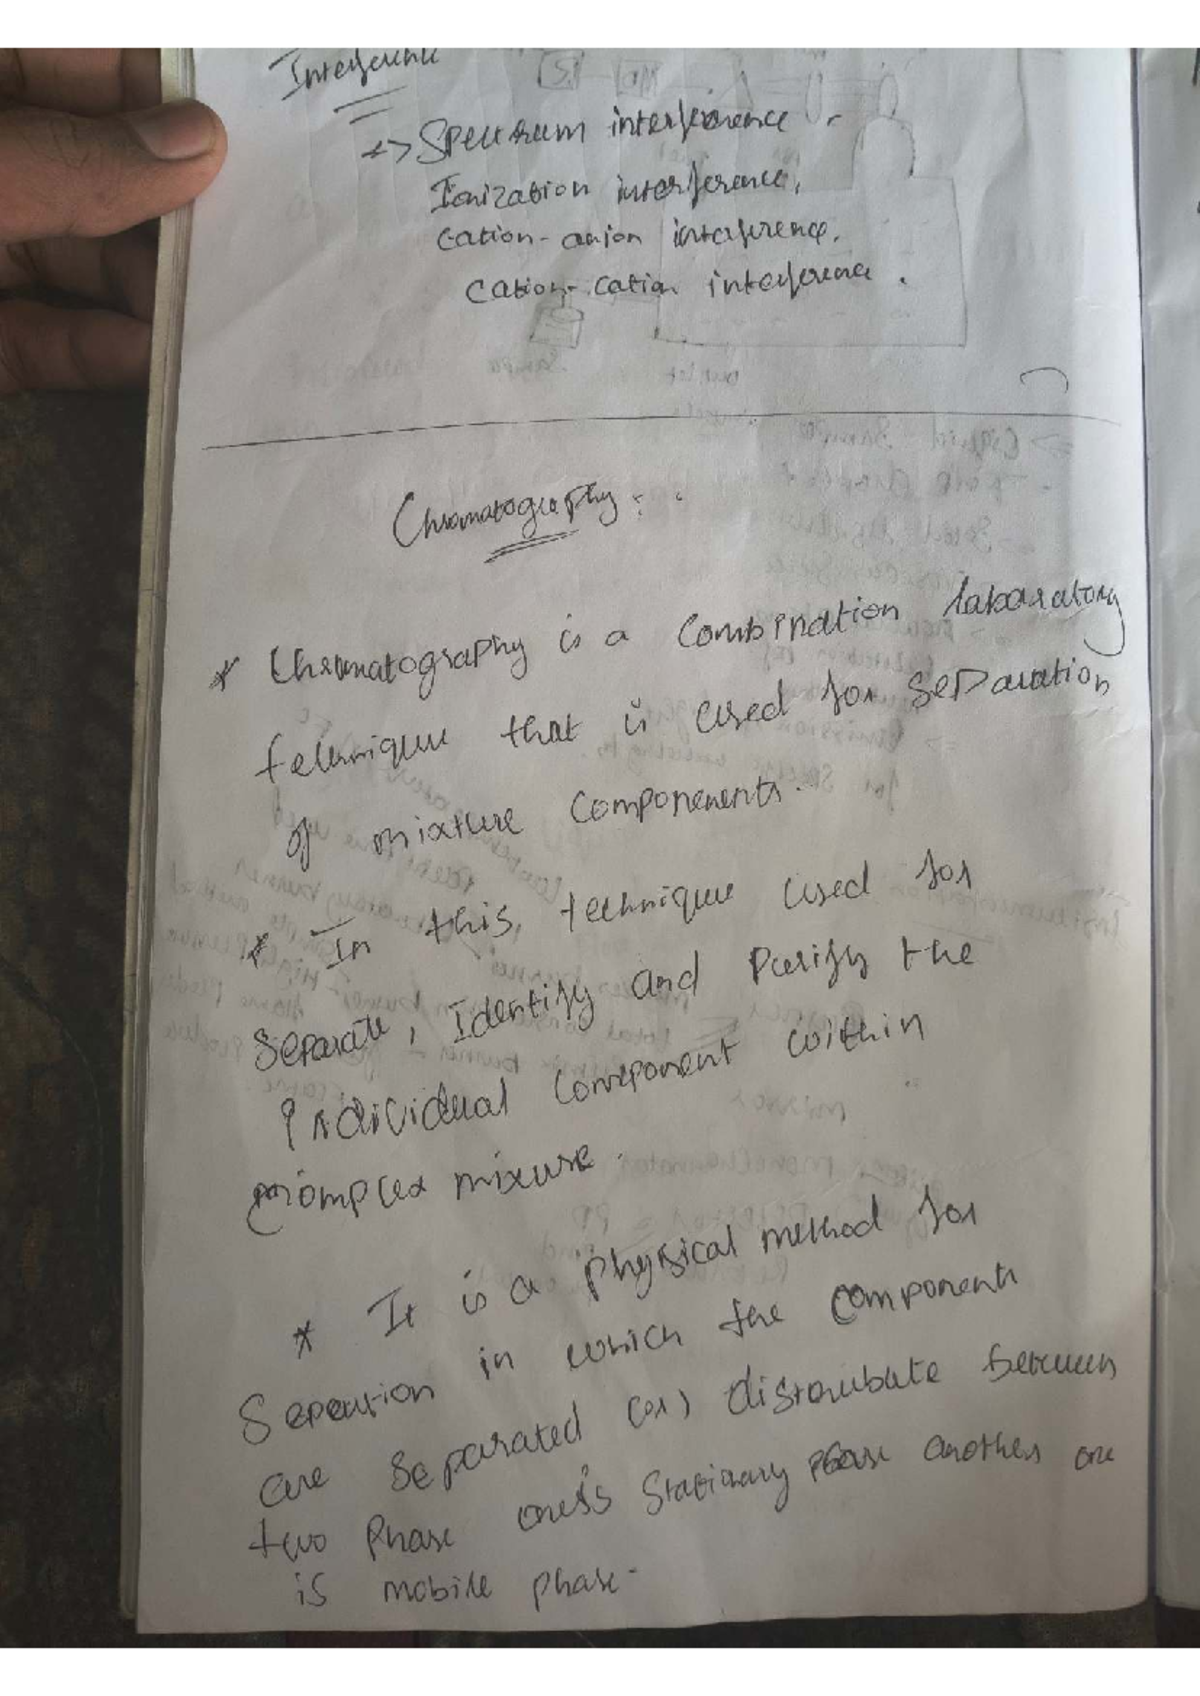 Interference
=> Spectrum interference.
Ionization interference,
Cation-anion interference.
Cation-cation interference.
Chromatography:
* Chromatography is a combination laboratory
technique that is used for separation
of mixture components.
* In this, technique used for
separate, Identify and Purify the
Individual component within
complex mixure.
* It is a physical method for
Separation in which the components
are separated (or) distribute between
two Phase one is Stationary phase another one
is mobile phase.